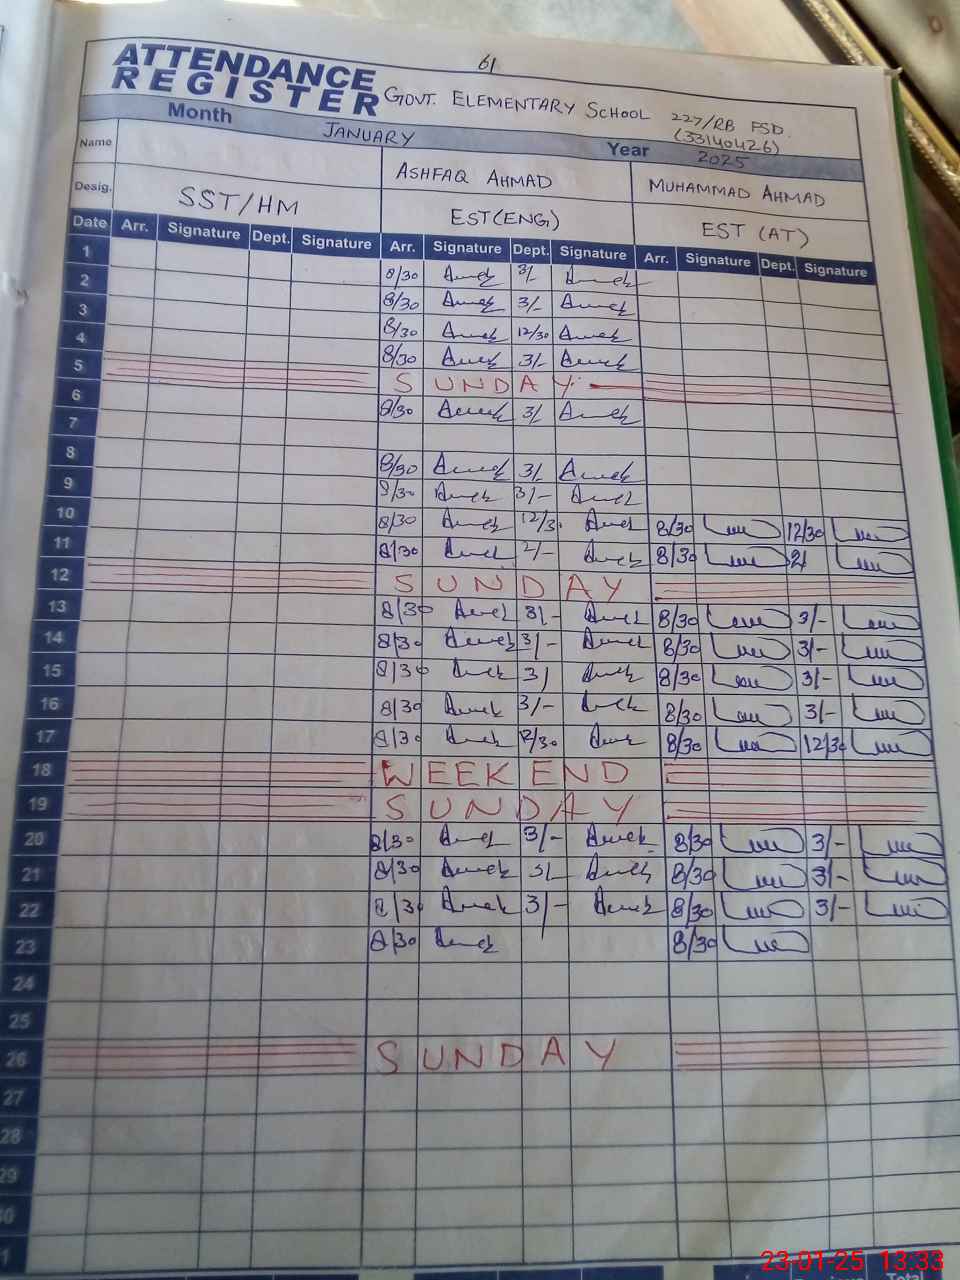 61
ATTENDANCE
REGISTER
GOVT. ELEMENTARY SCHOOL 227/RB FSD.
(33140426)
Month JANUARY Year 2025
Name ASHFAQ AHMAD MUHAMMAD AHMAD
Desig. SST/HM EST(ENG) EST (AT)
Date Arr. Signature Dept. Signature Arr. Signature Dept. Signature Arr. Signature Dept. Signature
1 8/30 3/-
2 8/30 3/-
3 8/30 12/30
4 8/30 3/-
5 SUNDAY
6 8/30 3/-
7
8 8/30 3/-
9 8/30 3/-
10 8/30 12/3 8/30 12/30
11 8/30 2/- 8/30 2/
12 SUNDAY
13 8/30 3/- 8/30 3/-
14 8/30 3/- 8/30 3/-
15 8/30 3/ 8/30 3/-
16 8/30 3/- 8/30 3/-
17 8/30 12/30 8/30 12/30
18 WEEK END
19 SUNDAY
20 8/30 3/- 8/30 3/-
21 8/30 3/- 8/30 3/-
22 8/30 3/- 8/30 3/-
23 8/30 8/30
24
25
26 SUNDAY
27
28
29
30
1
23-01-25 13:33